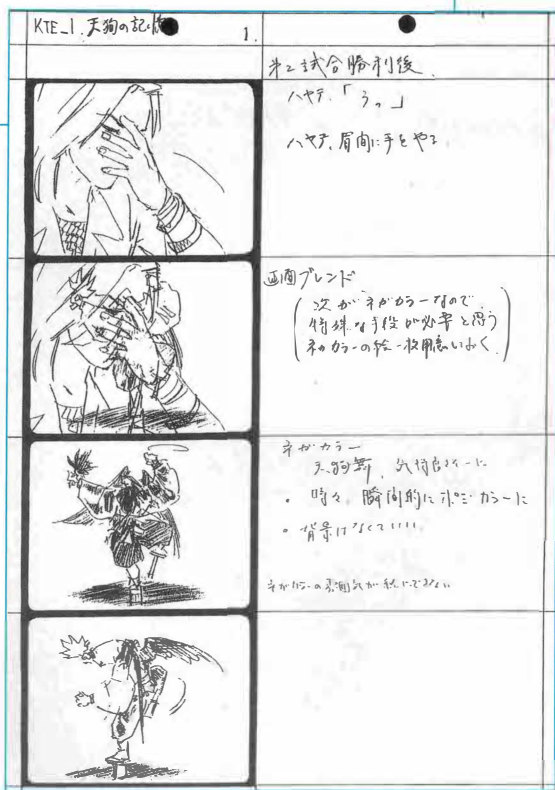 KTE_1. 天狗の記憶
1.
第2試合勝利後
ハヤテ「うっ」
ハヤテ、眉間に手をやる
画面ブレンド
次がネガカラーなので
特殊な手段が必要と思う
ネガカラーの絵一枚用意しておく
ネガカラー
天狗舞、
・時々 瞬間的にポジカラーに
・背景はなくていい。
ネガカラーの